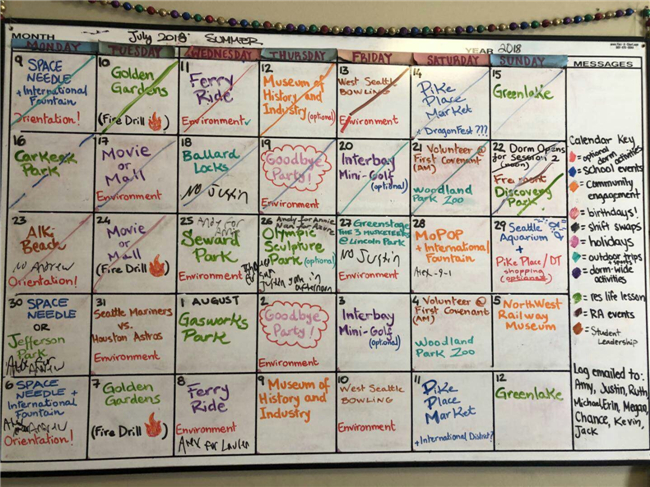 MONTH July 2018 SUMMER
YEAR 2018
MONDAY TUESDAY WEDNESDAY THURSDAY FRIDAY SATURDAY SUNDAY MESSAGES
9 SPACE
NEEDLE
+ International
Fountain
Orientation!
10 Golden
Gardens
(Fire Drill)
11 Ferry
Ride
Environment
12 Museum of
History and
Industry
(optional)
13
West Seattle
BOWLING
Environment
14
Pike
Place
Market
+ DragonFest ???
15
Greenlake
16
Carkeek
Park
17
Movie
or
Mall
Environment
18
Ballard
Locks
NO Justin
19
Goodbye
Party!
Environment
20
Interbay
Mini-Golf
(optional)
21 Volunteer @
First Covenant
(AM)
Woodland
Park Zoo
22 Dorm Opens
for Session 2
(noon)
Fremont
Discovery
Park
23
Alki
Beach
No Andrew
Orientation!
24
Movie
or
Mall
(Fire Drill)
25 Andy for Amy
Seward
Park
Environment
26 Andy for Annie
Olympic
Sculpture
Park
(optional)
Justin
afternoon
27 Greenstage
THE 3 MUSKETEERS
@ Lincoln Park
No Justin
Environment
28
MoPOP
+ International
Fountain
Alex -9-1
29
Seattle
Aquarium
+
Pike Place/DT
shopping
(optional)
30
SPACE
NEEDLE
OR
Jefferson
Park
Andrew
31
Seattle Mariners
vs.
Houston Astros
Environment
1 AUGUST
Gasworks
Park
2
Goodbye
Party!
Environment
3
Interbay
Mini-Golf
(optional)
4 Volunteer @
First Covenant
(AM)
Woodland
Park Zoo
5
NorthWest
Railway
Museum
6
SPACE
NEEDLE +
International
Fountain
Andrew
Orientation!
7
Golden
Gardens
(Fire Drill)
8
Ferry
Ride
Environment
Amy for Lauren
9
Museum of
History and
Industry
10
West Seattle
BOWLING
Environment
11
Pike
Place
Market
+ International District?
12
Greenlake
Calendar Key
optional
dorm activities
school events
community
engagement
birthdays!
shift swaps
holidays
outdoor trips
+ sports
dorm-wide
activities
res life lesson
RA events
Student
Leadership
Log emailed to:
Amy, Justin, Ruth,
Michael, Erin, Megan,
Chance, Kevin,
Jack